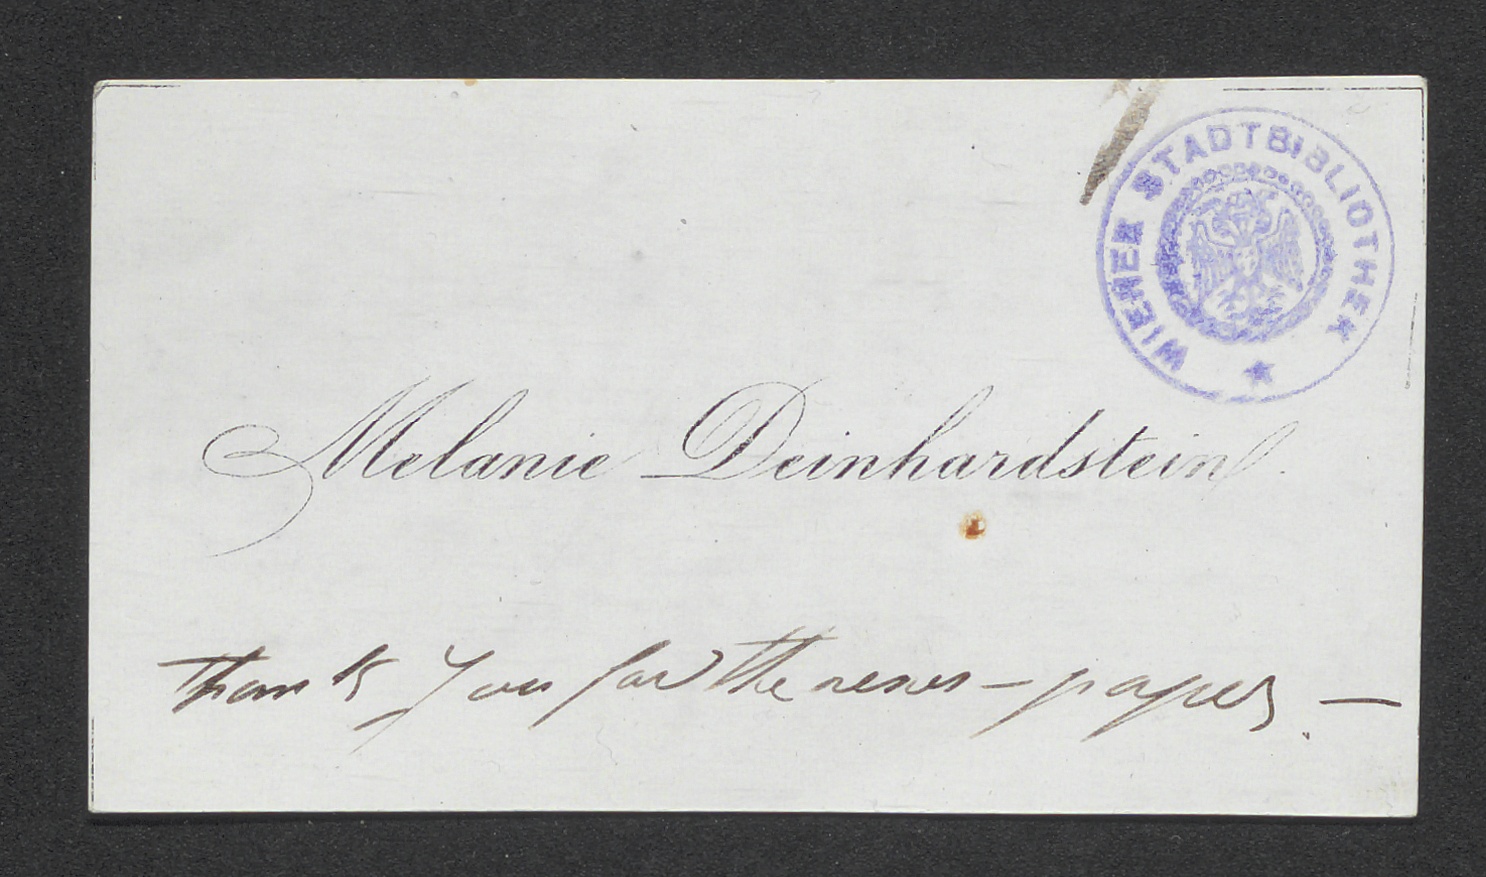 WIENER STADTBIBLIOTHEK
Melanie Deinhardstein
Thanks you for the news-papers. —